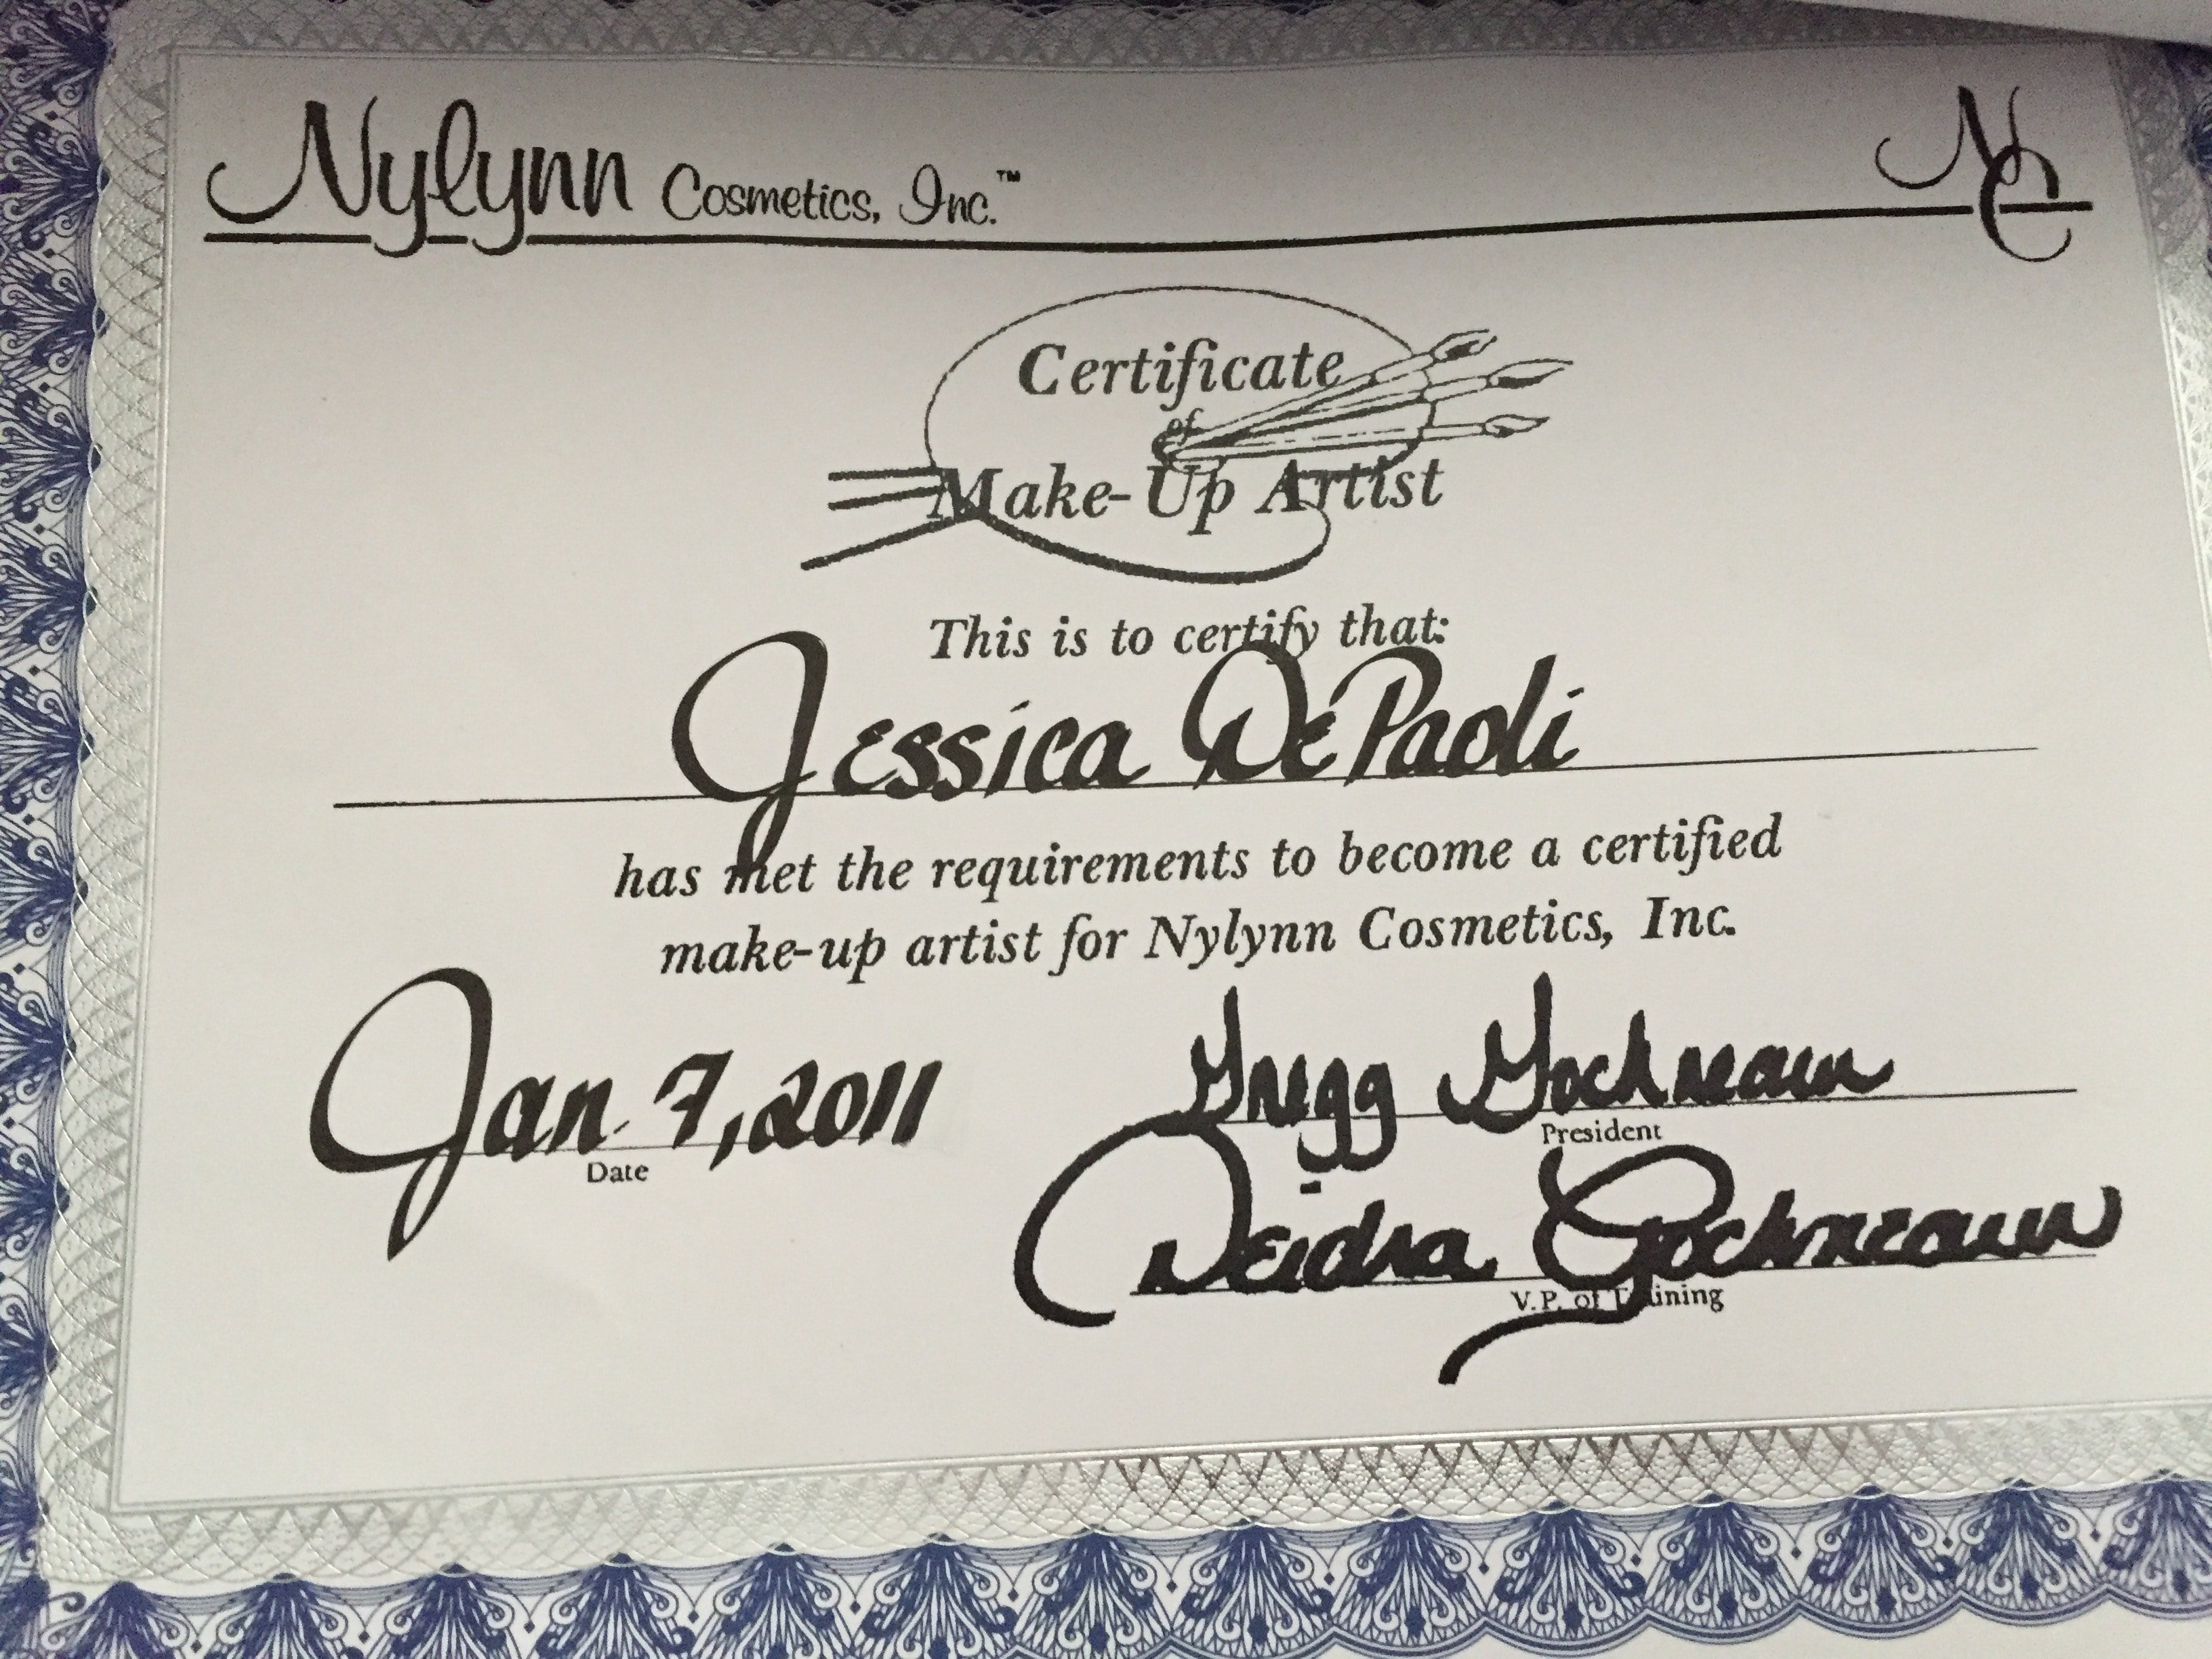 Nylynn Cosmetics, Inc.™ NC
Certificate
of
Make-Up Artist
This is to certify that:
Jessica DePaoli
has met the requirements to become a certified
make-up artist for Nylynn Cosmetics, Inc.
Jan. 7, 2011
Date
Gregg Gochneaur
President
Deidra Gochneaur
V.P. of Training